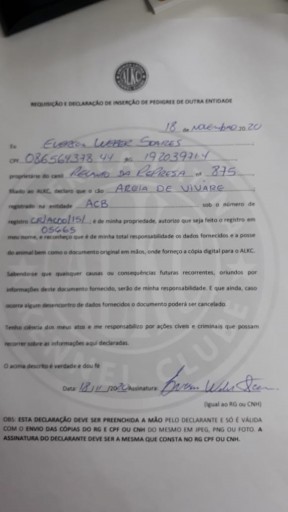 ALKC
REQUISIÇÃO E DECLARAÇÃO DE INSERÇÃO DE PEDIGREE DE OUTRA ENTIDADE
18 de NOVEMBRO 20
Eu
CPF RG
proprietário do canil REINO DA REPRESA nº 875
filiado ao ALKC, declaro que o cão AROIA DE VIVARE
registrado na entidade ACB sob o número de
registro , é de minha propriedade, autorizo que seja feito o registro em
05665
meu nome, e reconheço que é de minha total responsabilidade os dados fornecidos e a posse
do animal bem como o documento original em mãos, onde forneço a cópia digital para o ALKC.
Sabendo-se que quaisquer causas ou consequências futuras recorrentes, oriundos por
informações deste documento fornecido, serão de minha responsabilidade. E que ainda, caso
ocorra algum desencontro de dados fornecidos o documento poderá ser cancelado.
Tenho ciência dos meus atos e me responsabilizo por ações cíveis e criminais que possam
recorrer sobre as informações aqui declaradas.
O acima descrito é verdade e dou fé
Data: Assinatura:
(Igual ao RG ou CNH)
OBS: ESTA DECLARAÇÃO DEVE SER PREENCHIDA A MÃO PELO DECLARANTE E SÓ É VÁLIDA
COM O ENVIO DAS CÓPIAS DO RG E CPF OU CNH DO MESMO EM JPEG, PNG OU FOTO. A
ASSINATURA DO DECLARANTE DEVE SER A MESMA QUE CONSTA NO RG CPF OU CNH.